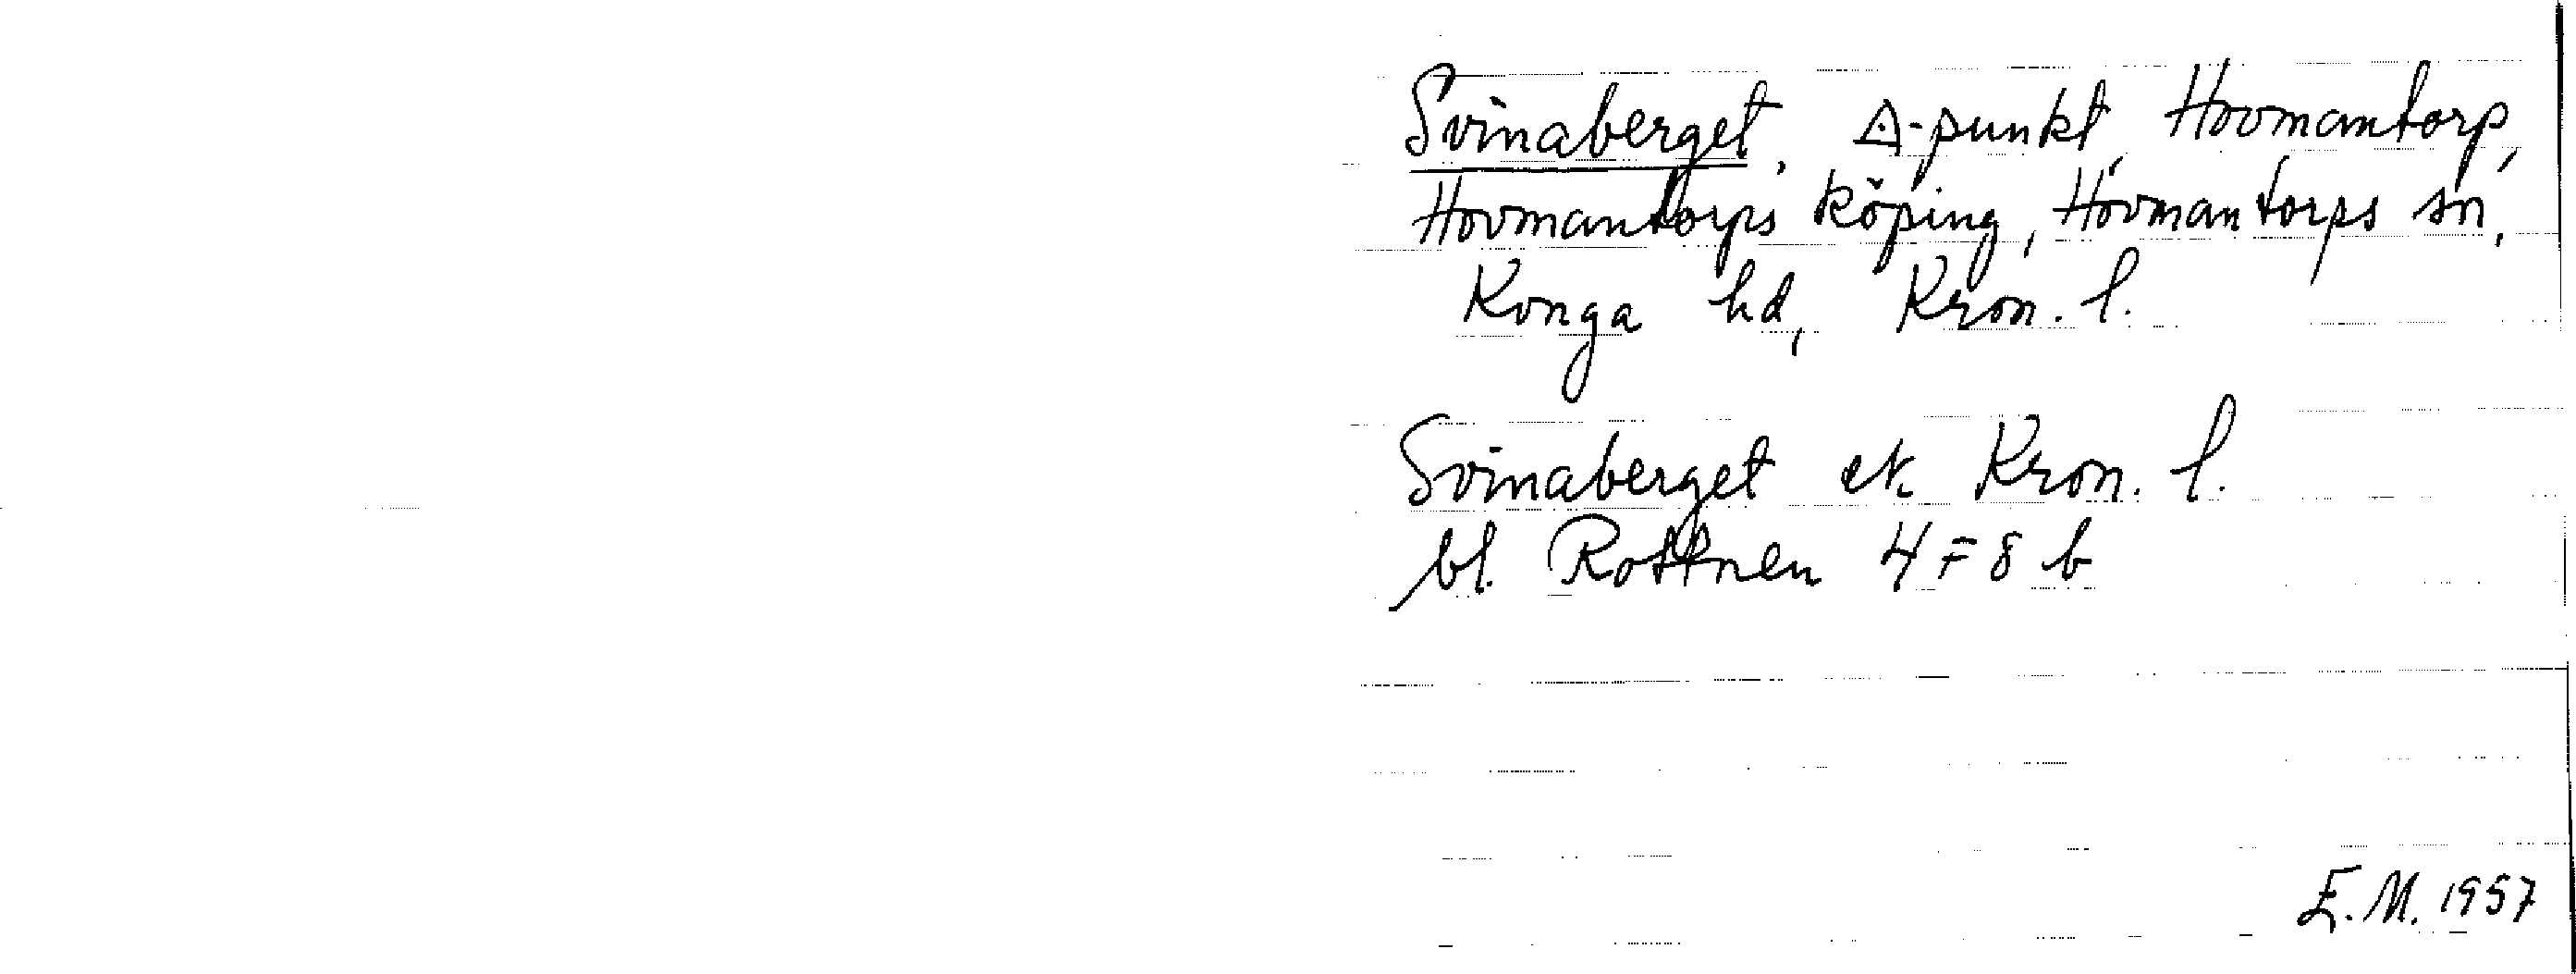 Svinaberget, △-punkt, Hovmantorp,
Hovmantorps köping, Hovmantorps sn,
Konga hd, Kron. l.
Svinaberget ek Kron. l.
bl. Rottnen 4 F 8 b
E. M. 1957